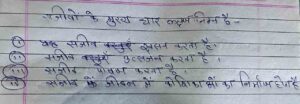 सजीवो के मुख्य चार लक्षण निम्न है -
(i) सजीव वस्तुएँ श्वसन करता है।
(ii) सजीव वस्तुएँ उत्सर्जन करता है।
(iii) सजीव करता है।
(iv) सजीव के जीवन में कोशिकाओं का निर्माण होता है